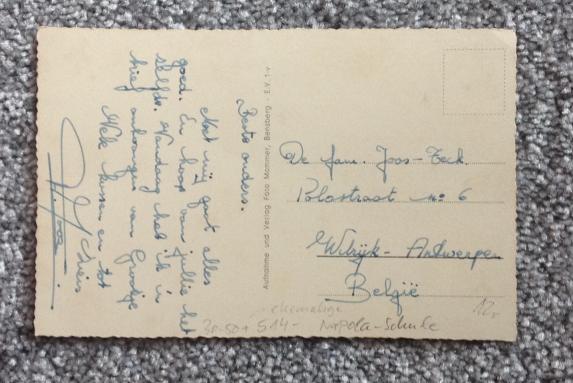 Beste ouders.
Met mij gaat alles
goed. En hoop van jullie het
zelfde. Vandaag heb ik u
brief ontvangen van
Vele kussen en tot
Aufnahme und Verlag Foto Mommer, Bergheim
De fam. Joos-Teck.
straat no 6
Wilrijk - Antwerpen
België
ehemalige
514 - Napola-Schule
12,-